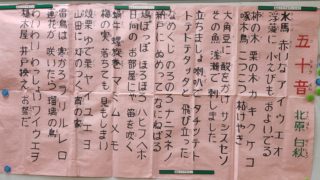 五十音
北原 白秋
水馬 赤いな アイウエオ
浮藻に 小えびも およいでる
柿の木 栗の木 カキクケコ
啄木鳥 こつこつ 枯れけやき
大角豆に 酢をかけ サシスセソ
その魚 浅瀬で 刺しました
立ちましょ 喇叭で タチツテト
トテトテタッタと 飛び立った
なめくじ のろのろ ナニヌネノ
納戸に ぬめって なにねばる
鳩ぽっぽ ほろほろ ハヒフヘホ
日向の お部屋にゃ 笛を吹く
蝸牛 螺旋巻 マミムメモ
梅の実 落ちても 見もしまい
焼栗 ゆで栗 ヤイユエヨ
雷鳥は 寒かろ ラリルレロ
蓮花が 咲いたら 瑠璃の鳥
わいわい わっしょい ワイウエヲ
植木屋 井戸換え お祭だ